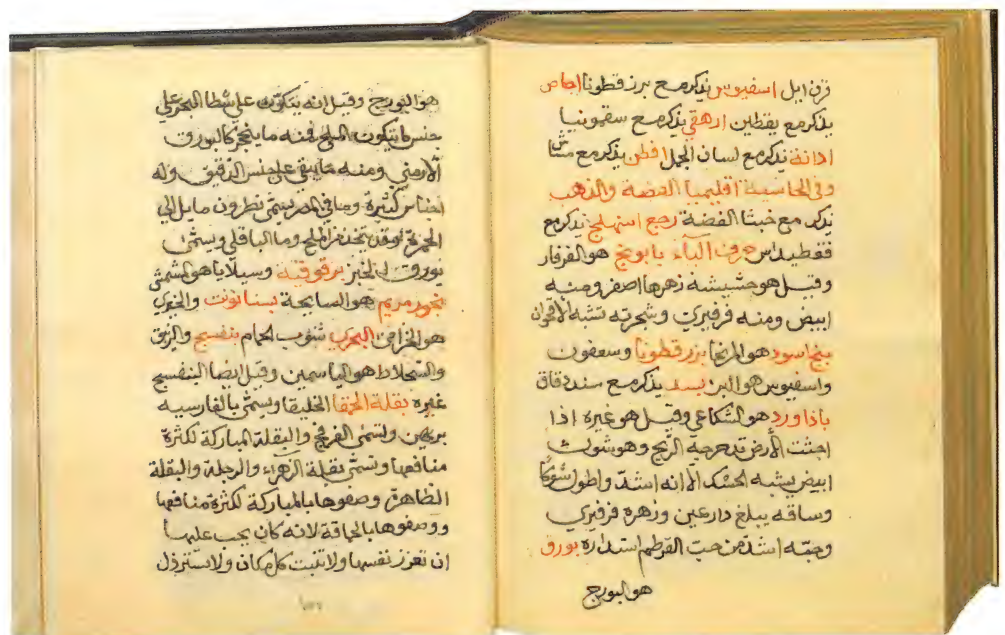 قرن ايل اسفيوس يذكر مع بزرقطونا اجاص
يذكر مع يقطين ارهقي يذكر مع سقمونيا
اذانة يذكر مع لسان الحمل افطن يذكر مع
وفي الحاسية اقليميا الفضة والذهب
يذكر مع خبث الفضة رجع اسهلج يذكر مع
حرف الباء بابونج هو القرفار
وقيل هو حشيشة زهرها اصفر ومنه
ابيض ومنه فرفيري وشجرته تشبه الاقحوان
بنج اسود هو المرنجا بزرقطونا وسعفون
واسفيوس هو البزر بسد يذكر مع سندد قاق
باذاورد هو الشكاعي وقيل هو غيره اذا
اجثت الأرض تدحرجه الريح وهو شوك
ابيض يشبه الحسك الا انه اشد واطول شوكا
وساقه يبلغ ذارعين وزهره فرفيري
وحبه اشد من حب القرطم استدارة بورق
هو البورج
هو البورج وقيل انه يتكون على شطا البحر على
جنس ما يتكون الملح فمنه ما ينجر كالبورق
الأرمني ومنه ما يبقى على جنس الدقيق وله
اجناس كثيرة وما في المصر يسمى نطرون مايل الى
الحمرة وقد يتخذ من الملح وما الباقلي ويسمى
بورق الخبز برقوقية وسيلايا هو المشمش
بخور مريم هو السايحة والخيري
هو الخزامى البحري شوب الحمام بنفسج والزرق
والسجلاط هو الياسمين وقيل ايضا البنفسج
غيره بقلة الحمقا الخليقا ويسمى بالفارسيه
بربهين ولتسمى الفرفح والبقلة المباركة لكثرة
منافعها وتسمى بقلة الزهراء والرجلة والبقلة
الظاهرة وصفوها بالمباركة لكثرة منافعها
ووصفوها بالحماقة لانه كان يجب عليها
ان تعزز نفسها ولا تنبت كل مكان ولا تسترذل